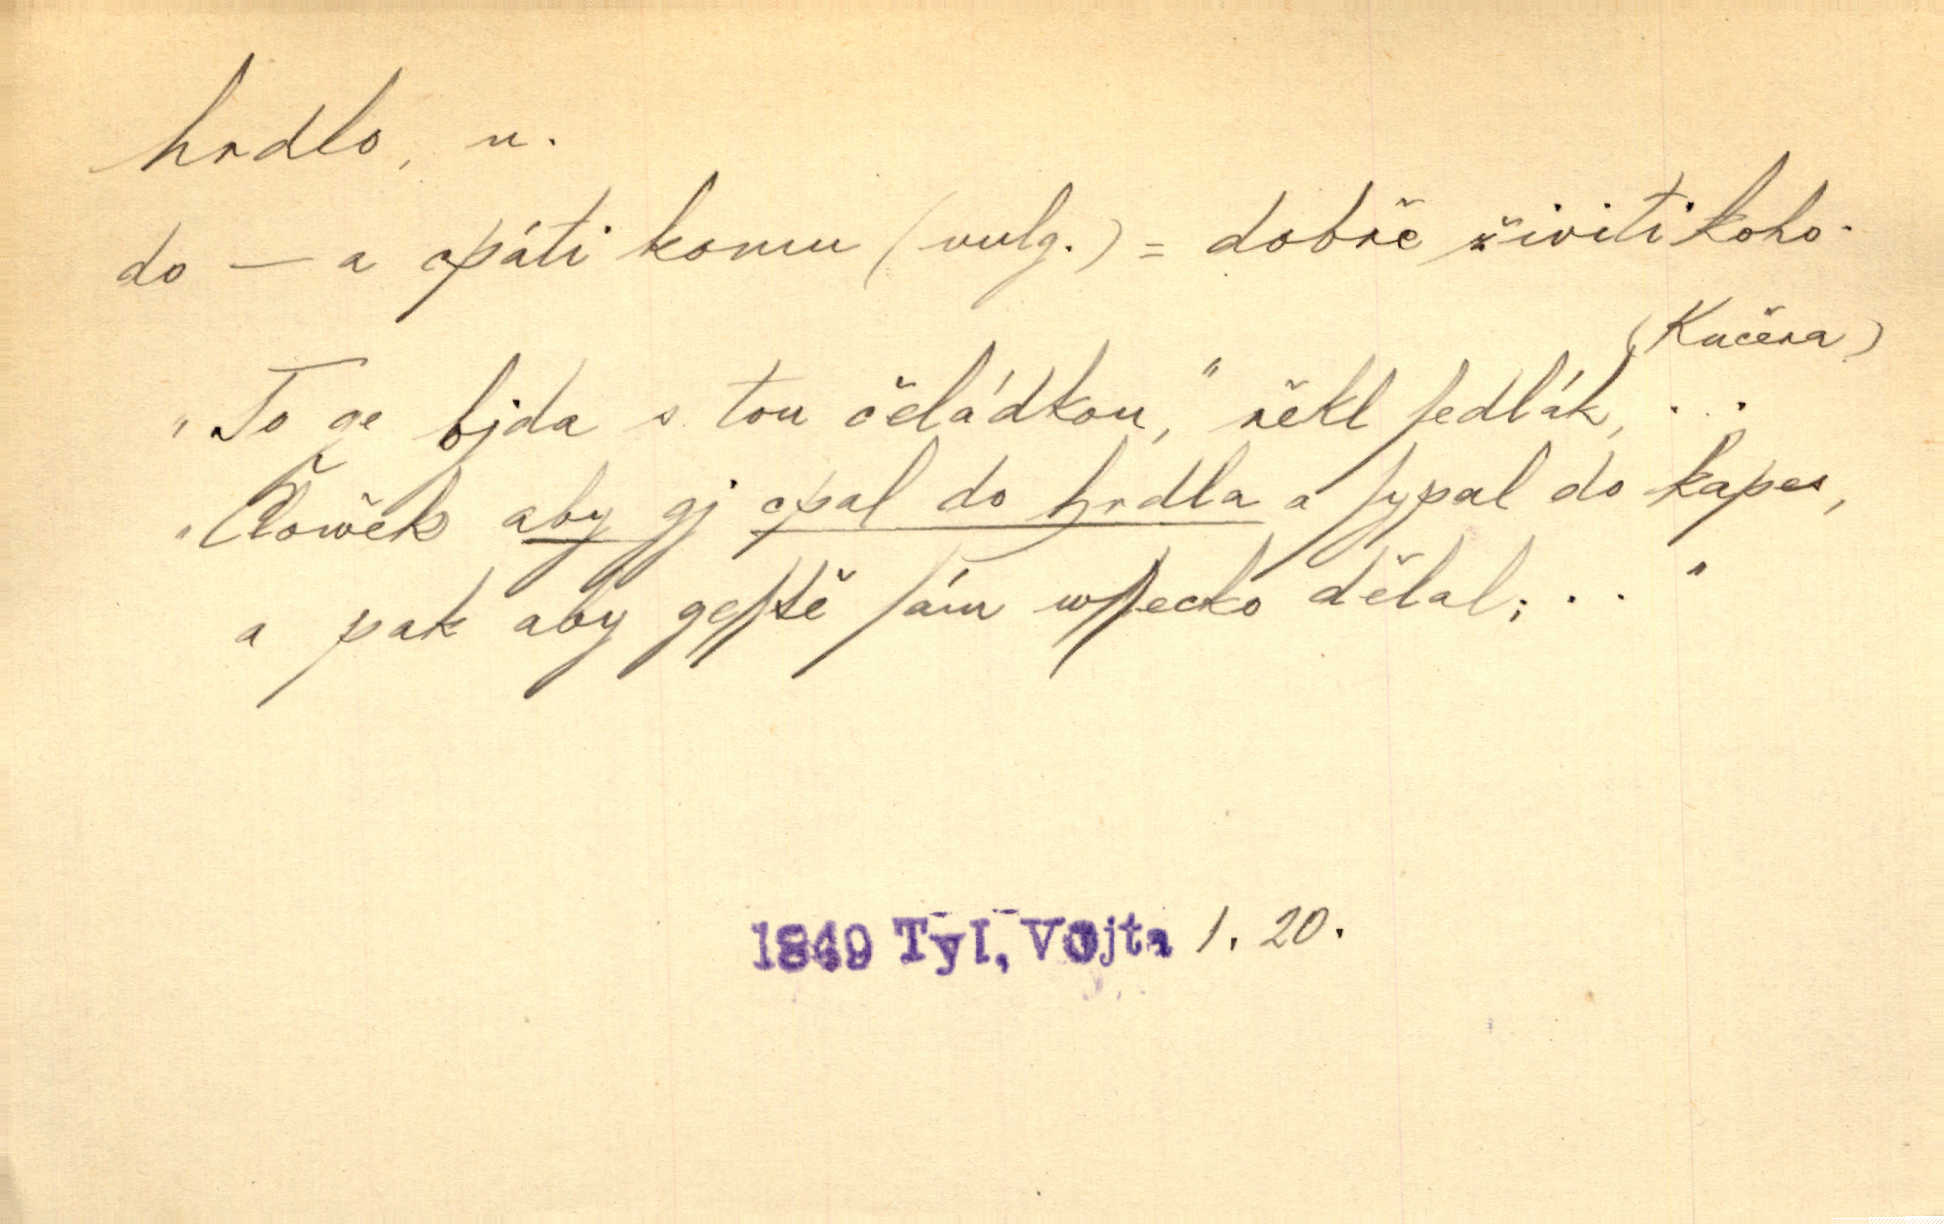 hrdlo, n.
do — a cpáti komu (vulg.) = dobře živiti koho.
(Kučera)
„To ge bjda s tou čeládkou," řekl ſedlák, . . .
„Člowěk aby gj cpal do hrdla a ſypal do kapes,
a pak aby geſſtě ſám wſſecko dělal; . . . "
1849 Tyl, Vojta 1. 20.